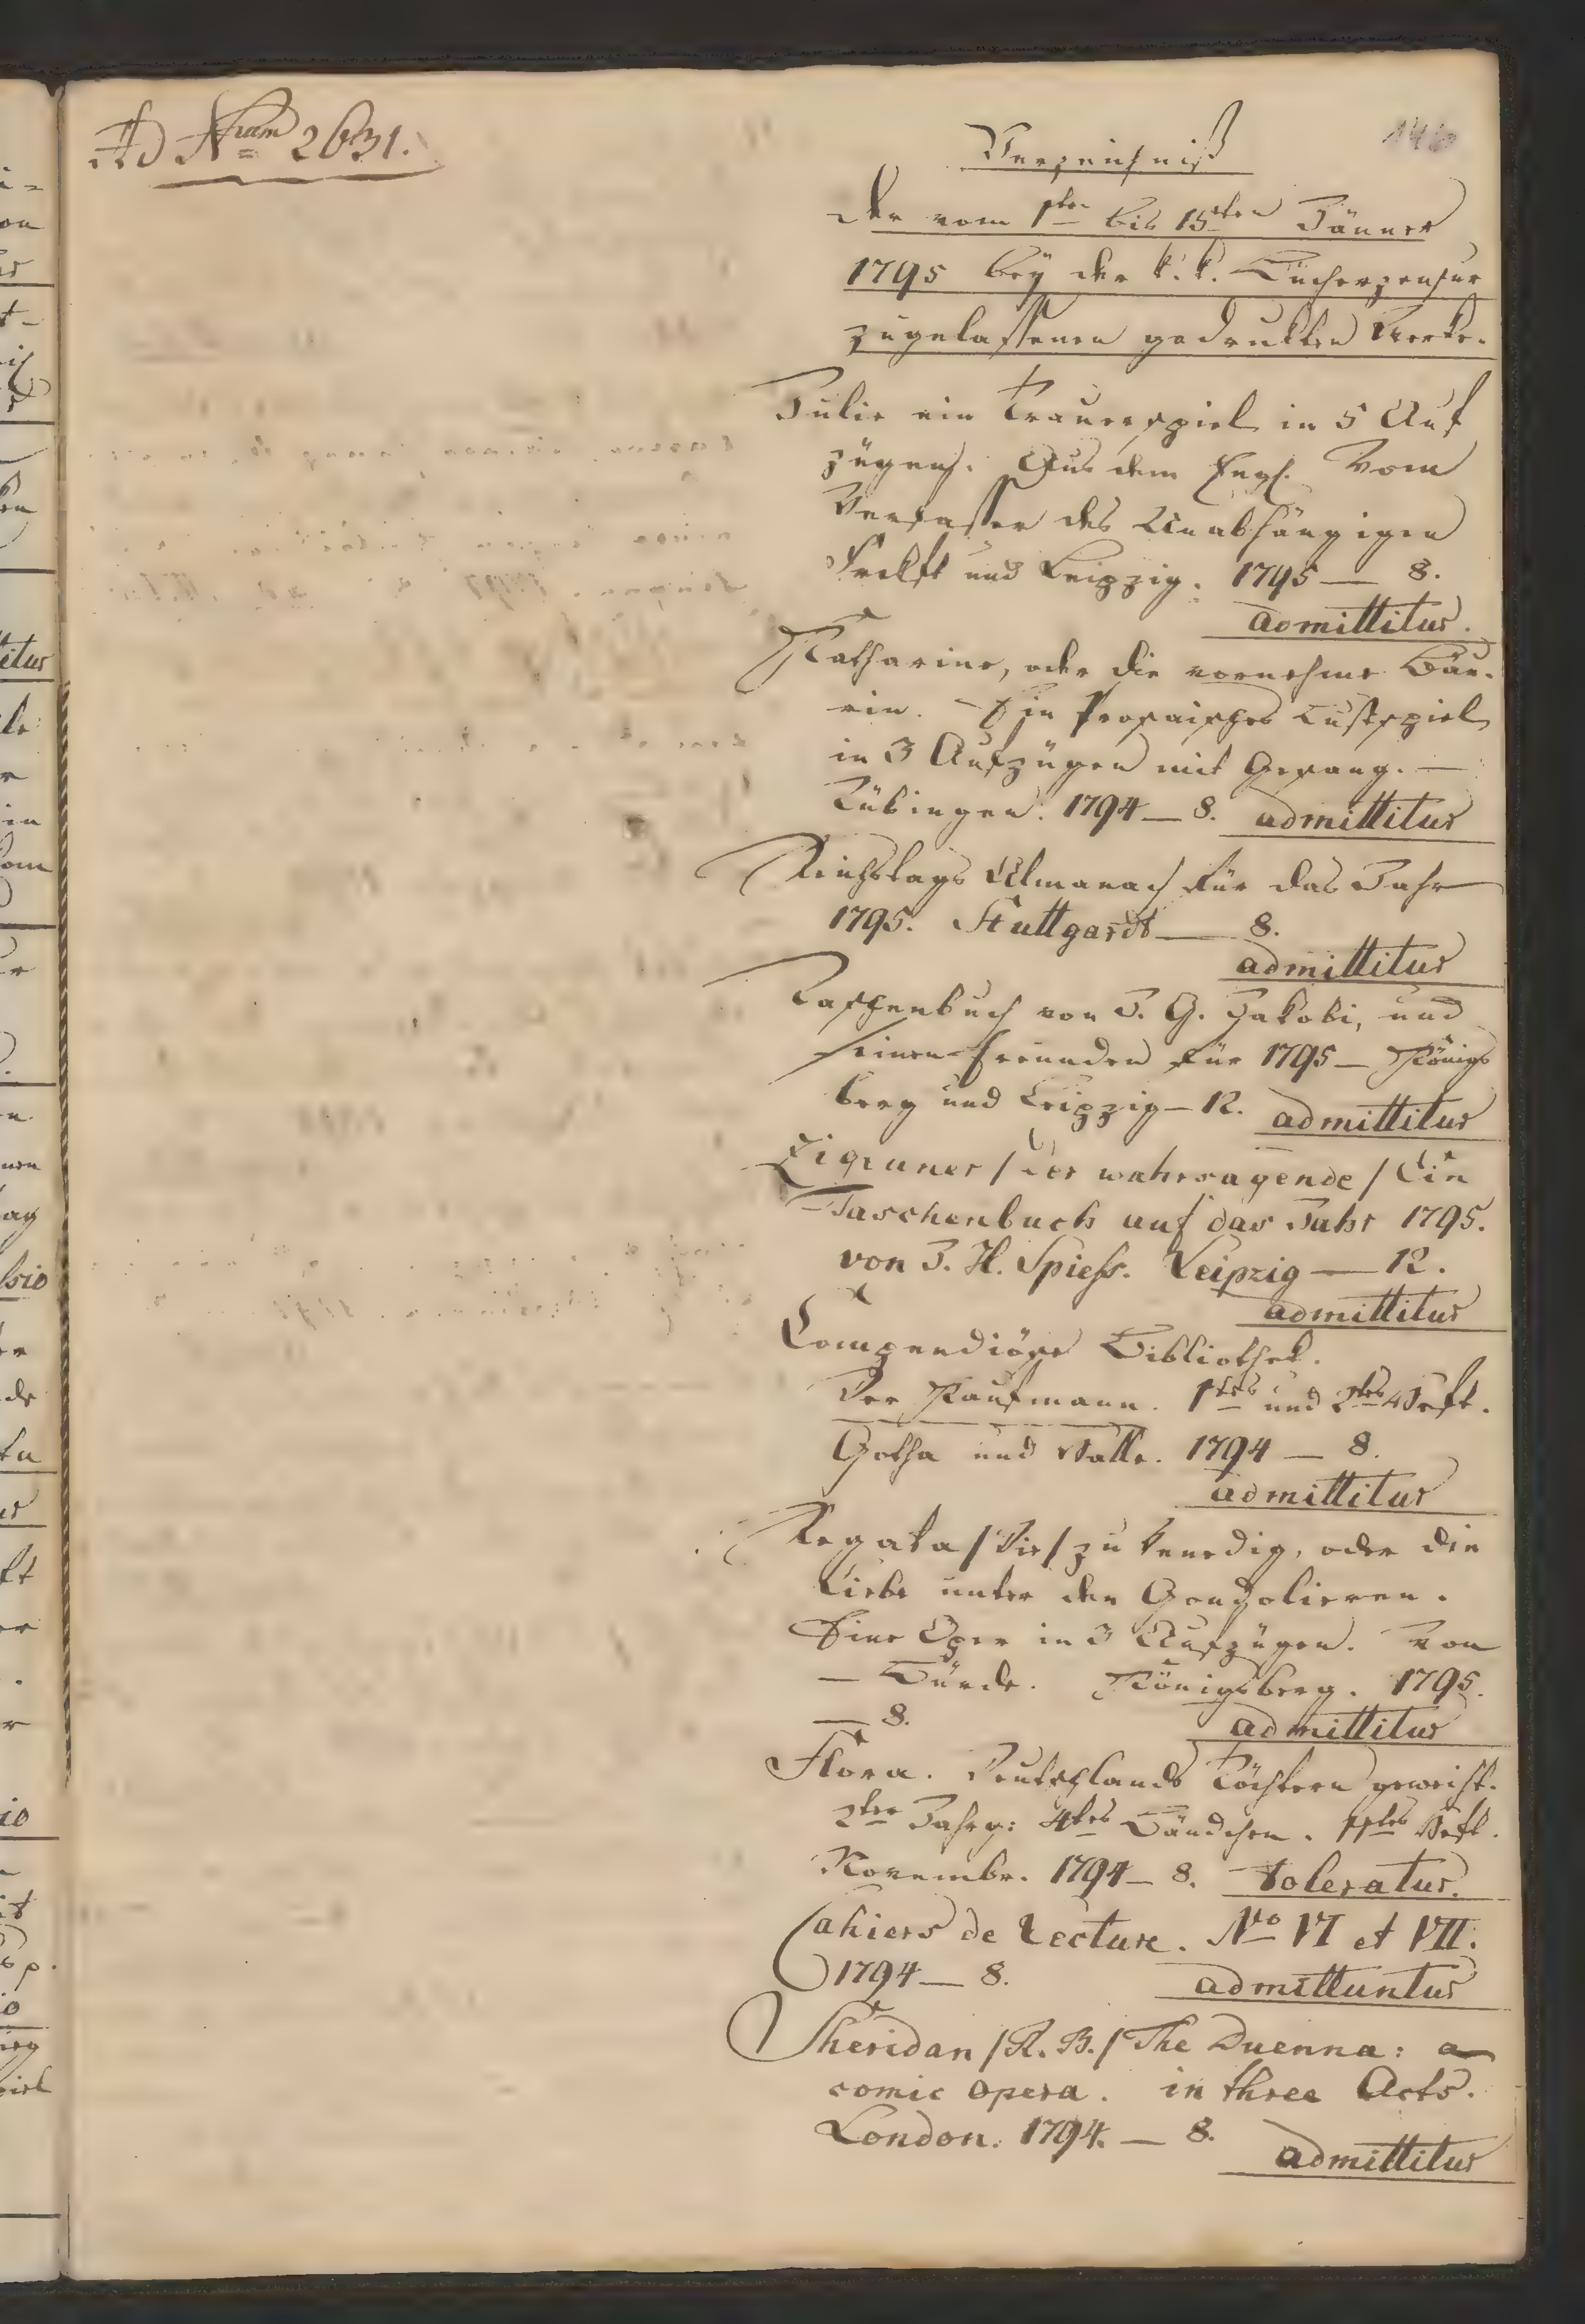 Ad Nrum 2631.
146
Verzeichniß
der vom 1ten bis 15ten Jänner
1795 bey der k. k. Bücherzensur
zugelassenen gedruckten Werke.
Julie ein Trauerspiel in 5 Auf
zügen. Aus dem Engl. Vom
Verfasser des Unabhängigen
Frckft und Leipzig. 1795 — 8.
admittitur.
Katharine, oder die vornehme Bäu-
rin. Ein prosaisches Lustspiel
in 3 Aufzügen mit Gesang. —
Tübingen. 1794 — 8. admittitur
Reichstags Almanach für das Jahr
1795. Stuttgardt — 8.
admittitur
Taschenbuch von J. G. Jakobi, und
seinen Freunden für 1795 — Königs
berg und Leipzig — 12. admittitur
Zigeuner / der wahrsagende / Ein
Taschenbuch auf das Jahr 1795.
von J. H. Spiess. Leipzig — 12.
admittitur
Compendiöse Bibliothek.
Der Kaufmann. 1tes und 2tes Heft.
Gotha und Halle. 1794 — 8.
admittitur
Regata / Die / zu Venedig, oder die
Liebe unter den Gondolieren.
Eine Oper in 3 Aufzügen. Von
— Bürde. Königsberg. 1795.
— 8. admittitur
Flora. Deutschlands Töchtern geweiht.
2ter Jahrg: 4tes Bändchen. 11tes Heft.
Novembr. 1794 — 8. toleratur.
Cahiers de Lecture. No VI et VII.
1794 — 8. admittuntur
Sheridan / R. B. / The Duenna: a
comic opera. in three Acts.
London. 1794. — 8. admittitur